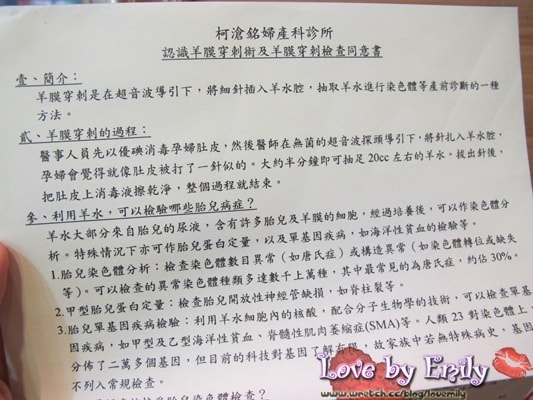 柯滄銘婦產科診所
認識羊膜穿刺術及羊膜穿刺檢查同意書
壹、簡介：
羊膜穿刺是在超音波導引下，將細針插入羊水腔，抽取羊水進行染色體等產前診斷的一種
方法。
貳、羊膜穿刺的過程：
醫事人員先以優碘消毒孕婦肚皮，然後醫師在無菌的超音波探頭導引下，將針扎入羊水腔，
孕婦會覺得就像肚皮被打了一針似的。大約半分鐘即可抽足20cc左右的羊水。拔出針後，
把肚皮上消毒液擦乾淨，整個過程就結束。
參、利用羊水，可以檢驗哪些胎兒病症？
羊水大部分來自胎兒的尿液，含有許多胎兒及羊膜的細胞，經過培養後，可以作染色體分
析。特殊情況下亦可作胎兒蛋白定量，以及單基因疾病，如海洋性貧血的檢驗等。
1.胎兒染色體分析：檢查染色體數目異常（如唐氏症）或構造異常（如染色體轉位或缺失
等）。可以檢查的異常染色體種類多達數千上萬種，其中最常見的為唐氏症，約佔30%。
2.甲型胎兒蛋白定量：檢查胎兒開放性神經管缺損，如脊柱裂等。
3.胎兒單基因疾病檢驗：利用羊水細胞內的核酸，配合分子生物學的技術，可以檢查單基
因疾病，如甲型及乙型海洋性貧血、脊髓性肌肉萎縮症(SMA)等。人類23對染色體上，
分佈了二萬多個基因，但目前的科技對基因了解有限，故家族中若無特殊病史，基因
不列入常規檢查。
Love by Emily
www.wretch.cc/blog/lovemily